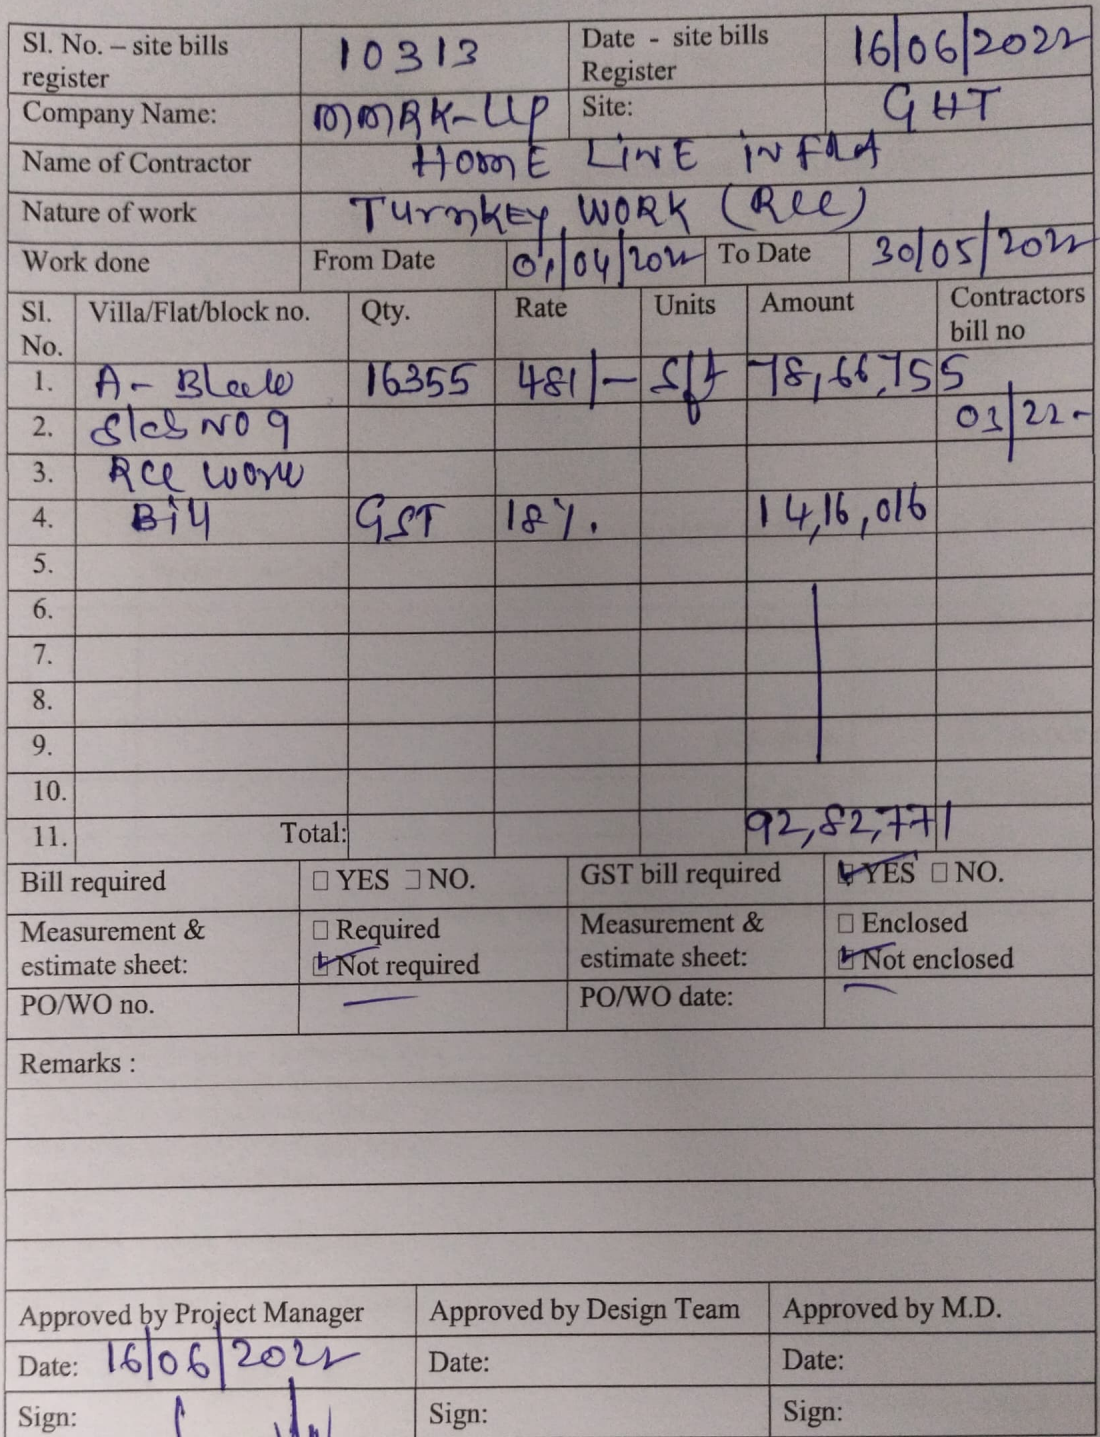 Sl. No. – site bills register 10313 Date - site bills Register 16/06/2022
Company Name: MMRK-UP Site: GHT
Name of Contractor HOME LINE INFRA
Nature of work TURNKEY WORK (RCC)
Work done From Date 01/04/2022 To Date 30/05/2022
Sl. No. Villa/Flat/block no. Qty. Rate Units Amount Contractors bill no
1. A- Block 16355 481/- Sft 78,66,755
2. Slab NO 9 03/22-
3. RCC work
4. Bill GST 18%. 14,16,016
5.
6.
7.
8.
9.
10.
11. Total: 92,82,771
Bill required ☐ YES ☐ NO. GST bill required ☑ YES ☐ NO.
Measurement & estimate sheet: ☐ Required ☑ Not required Measurement & estimate sheet: ☐ Enclosed ☑ Not enclosed
PO/WO no. — PO/WO date: —
Remarks :
Approved by Project Manager Approved by Design Team Approved by M.D.
Date: 16/06/2022 Date: Date:
Sign: Sign: Sign: